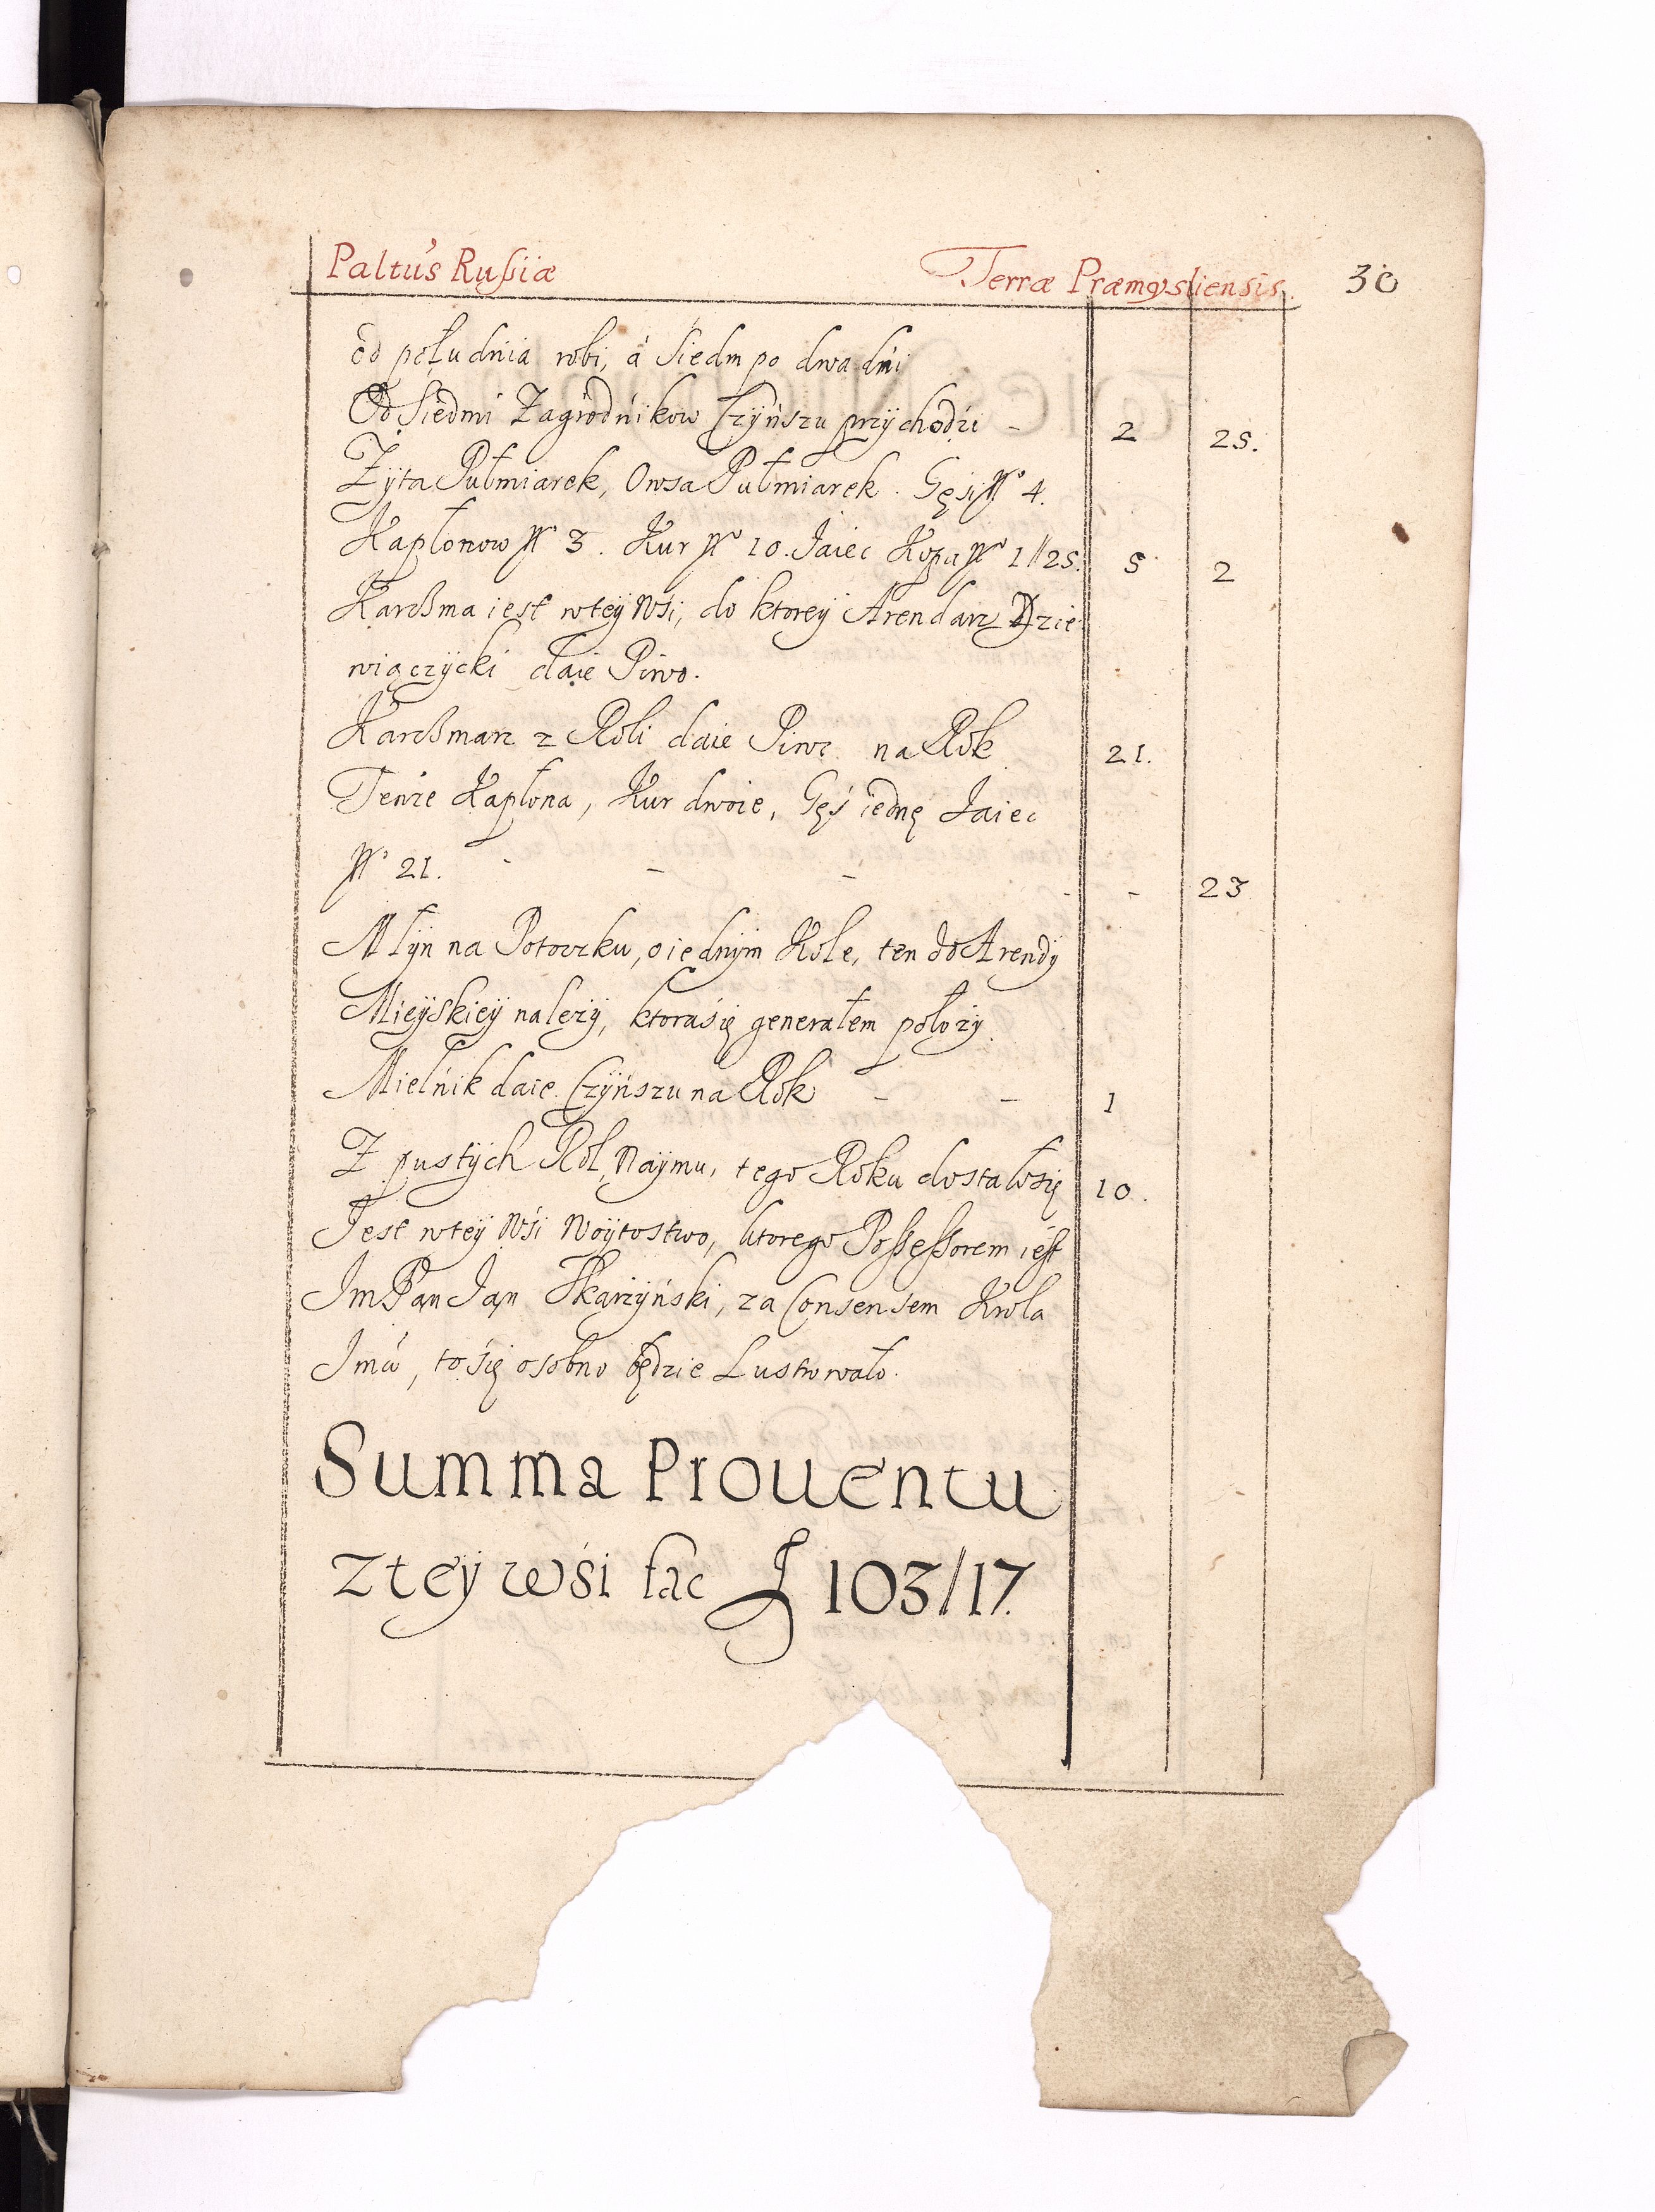 Paltus Rußiæ Terræ Præmysliensis. 30
od południa robi, á Siedm po dwa dni
Od Siedmi Zagrodnikow Czynszu przychodzi - 2 25.
Zyta Pułmiarek, Owsa Pułmiarek. Gęsi No 4.
Kapłonow No 3. Kur No 10. Jaiec Kopa No 1//25. 5 2
Karcßma iest wtey Wsi, do ktorey Arendarz Dzie
wiączycki daie Piwo.
Karcßmarz z Roli daie Piwo na Rok 21.
Tenże Kapłona, Kur dwoie, Gęś iednę Jaiec
No 21. - - - - - 23
Młyn na Potoczku, o iednym Kole, ten do Arendy
Mieyskiey należy, ktora się generałem położy.
Mielnik daie Czynszu na Rok - - 1
Z pustych Rol Naymu, tego Roku dostało się 10.
Jest wtey Wsi Woytostwo, ktorego Possessorem iest
Im Pan Jan Skarżyński, za Consensem Krola
Imći, to się osobno będzie Lustrowało.
Summa Prouentu
z tey wsi fac f 103//17.